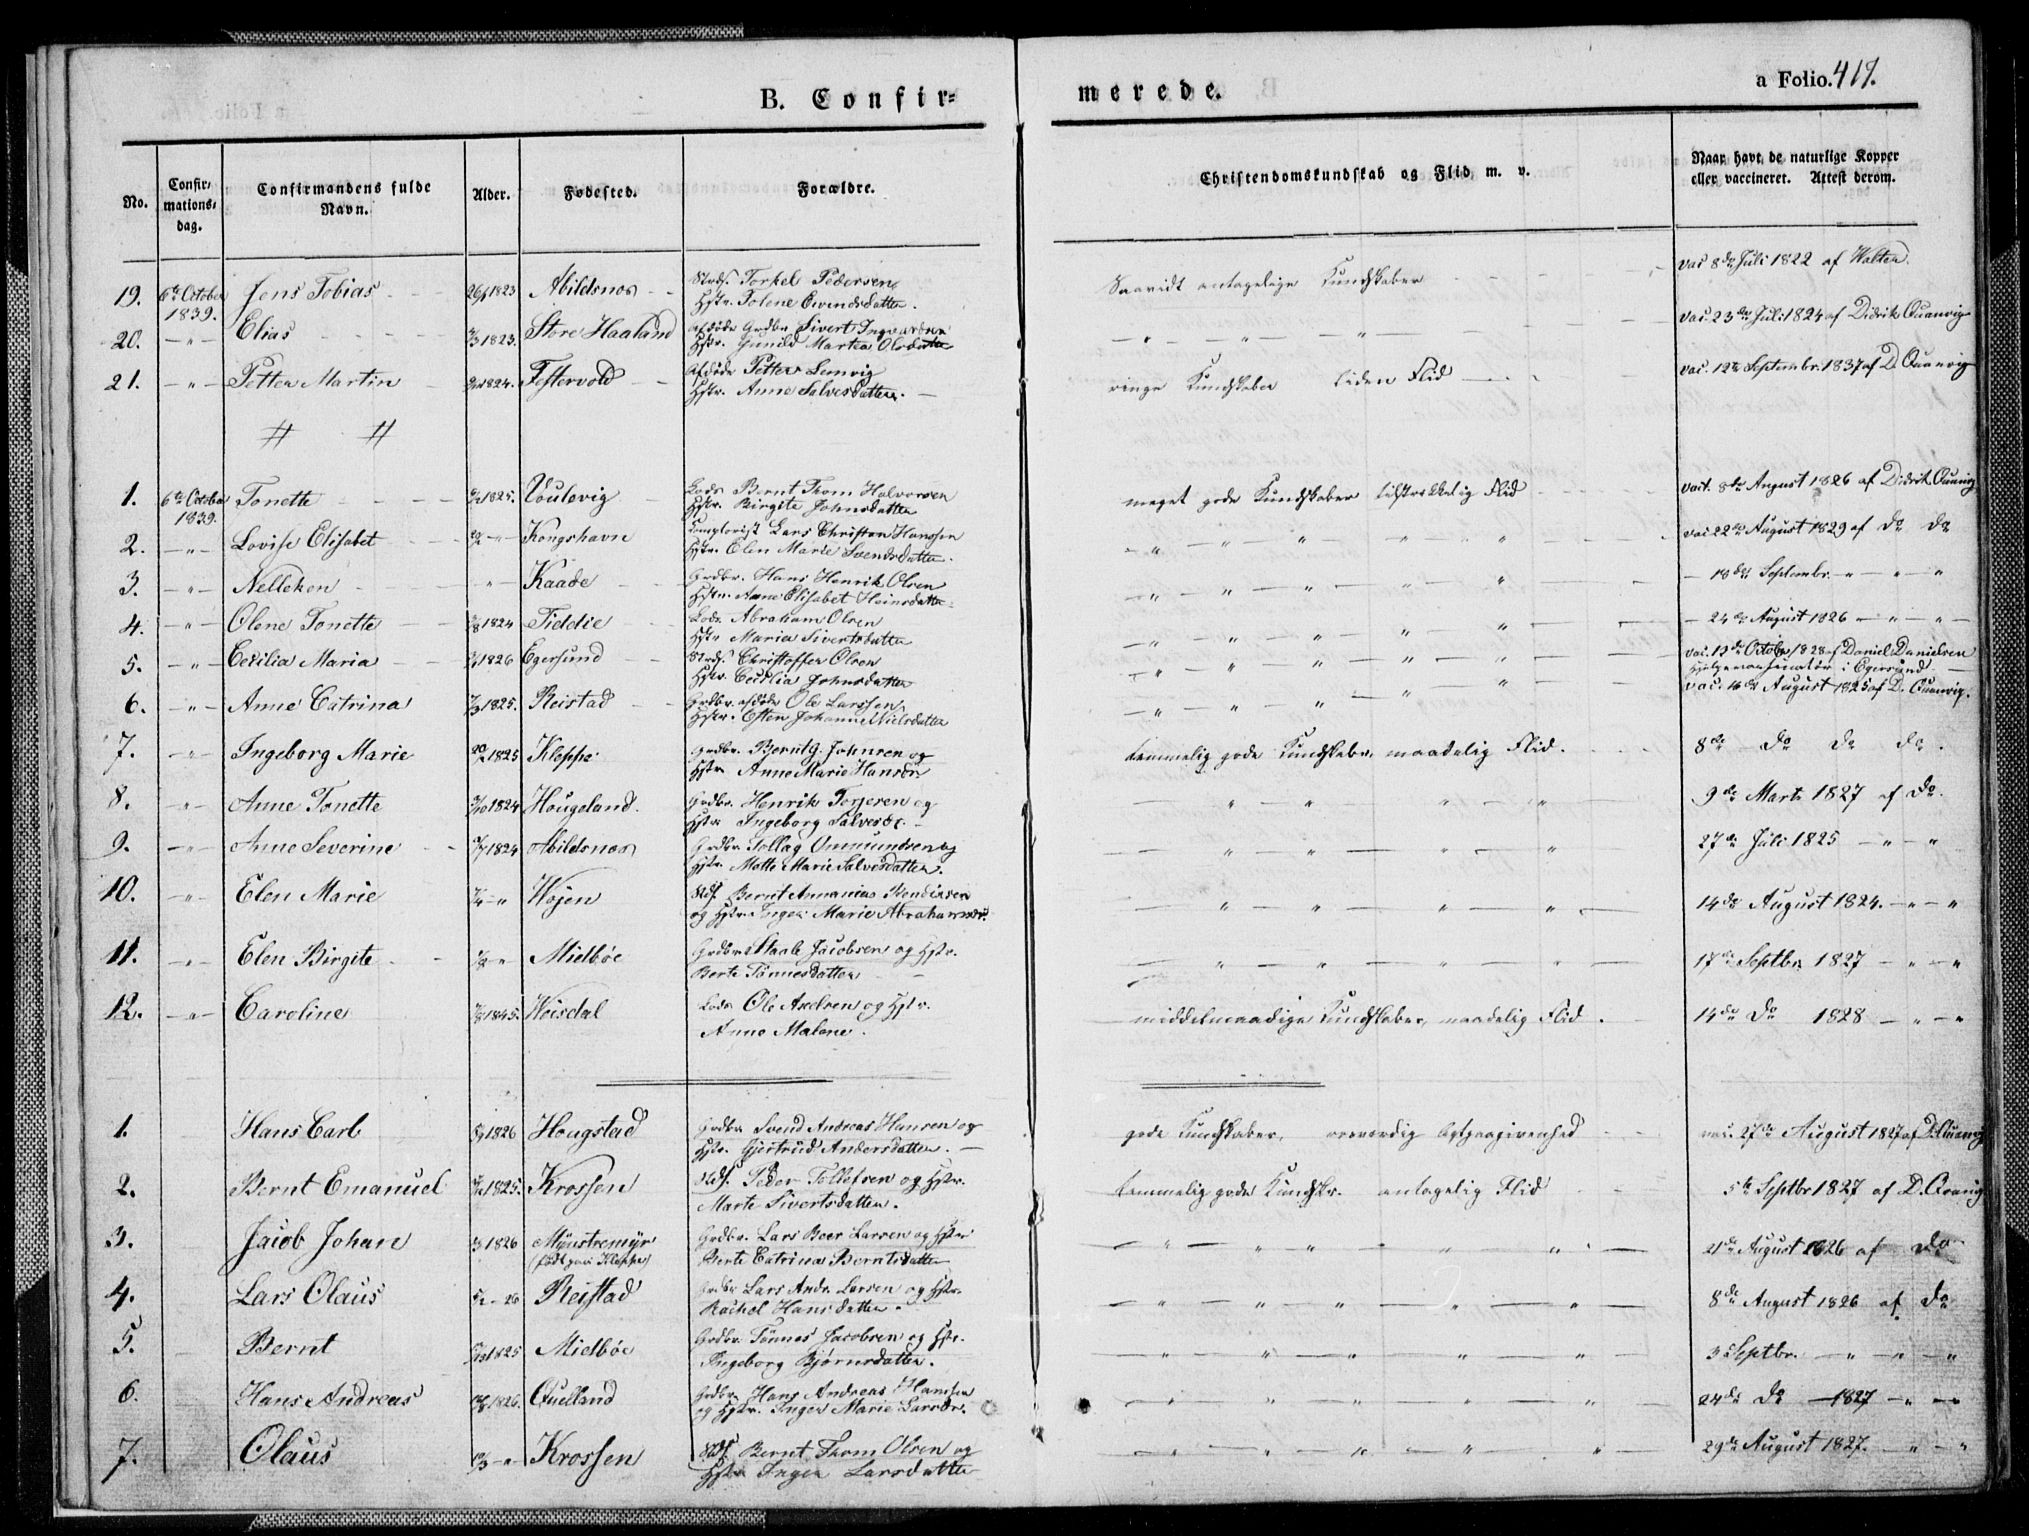 B. Confir=
merede.
a Folio. 417.
No.
Confir-
mations-
dag.
Confirmandens fulde
Navn.
Alder.
Fødested.
Forældre.
Christendomskundskab og Flid m. v.
Naar havt de naturlige Kopper
eller vaccineret. Attest derom.
19. 6te October 1839. Jens Tobias 1823 Abildsnes Torkel Pedersen
Hstr. Tolene Evindsdatter.
Saavidt antagelige Kundskaber
vac 8de Juli 1822 af Walter.
20. -"- Elias 1823. Store Haaland afdøde Grdbr. Sivert Ingvarsen
Hstr. Gunild Martea Olsdatter
- " - " - "
vac. 23de Juli 1824 af Didrik Quanvig
21. -"- Petter Martin 1824. Festervold Afdøde Petter Lenvig
Hstr. Anne Salvesdatter.
ringe Kundskaber liden Flid
vac. 12te Septembr. 1837 af D. Quanvig
1. 6te October 1839. Tonette 1825. Voulevig Lods Bernt Thom Halvorsen
Hstr. Birgite Johnsdatter
meget gode Kundskaber tilstrækkelig Flid
vact. 8de August 1826 af Didrik Quanvig
2. -"- Lovise Elisabet Kongshavn Lars Christian Hanssen
Hstr. Elen Marie Svendsdatter.
vac 22de August 1829 af do do
3. -"- Nelleken -"- Kaade Grdbr. Hans Henrik Olsen
Hstr. Anne Elisabet Heinsdatter
- 18de Septembr. - " - " - "
4. -"- Olene Tonette 1824 Tiddie Lods Abraham Olsen
Hstr Maria Sivertsdatter
- 24de August 1826 - " - " -
5. -"- Cecilia Maria 1826 Egersund Strds. Christoffer Olsen
Hstr. Cecilia Johnsdatter
vac. 12de Octobr 1828 af Daniel Danielsen
i Egersund
6. -"- Anne Catrina 1825. Reistad Grdbr. afdøde Ole Larssen
Hstr. Johanne Nielsdatter
vac. 16de August 1825 af D. Quanvig.
7. -"- Ingeborg Marie 1825 Kleppe Grdbr. Berntg. Johnsen og
Hstr Anne Marie Hansdr
temmelig gode Kundskaber, maadelig Flid.
8de do do do.
8. -"- Anne Tonette 1824 Hougeland. Grdbr. Henrik Torjersen og
Hstr Ingeborg Salvesdr.
9de Marts 1827 af do.
9. -"- Anne Severine 1824 Abildsnes Grdbr Tollag Ommundsen og
Hstr. Mette Marie Salvesdatter.
27de Juli 1825 - " - "
10. -"- Elen Marie Højen Strdf. Bernt Annanias Bendixsen
og Hstr. Inger Marie Abrahamsdr.
14de August 1824. - " - "
11. -"- Elen Birgite Mielbøe Grdbr. Staale Jacobsen og Hstr.
Berte Tönnesdatter
17de Septbr 1827 - " - "
12. -"- Caroline 1845. Høisdal Lods Ole Axelsen og Hstr.
Anne Malene.
middelmaadige Kundskaber, maadelig Flid.
14de do 1828 - " - "
1. Hans Carl 1826 Hougstad Grdbr Svend Andreas Hansen og
Hstr. Gjertrud Andersdatter.
gode Kundskaber, Agtpaagivenhed
vac. 27de August 1827 af D. Quanvig
2. Bernt Emanuel 1825. Krossen Strdf. Peder Tollefsen og Hstr.
Marte Sivertsdatter.
temmelig gode Kundsk. antagelig Flid
5te Septbr 1827 af D. Qvanvig
3. Jacob Johan 1826 Mynstremyr
(født paa Kleppe)
Grdbr. Lars Beer Larsen og Hstr
Berte Catrina Berntsdatter
21de August 1826 af do
4. Lars Olaus 26 Reistad Grdbr Lars Andr. Larsen og Hstr.
Rachel Hansdatter.
8de August 1826 af do
5. Bernt 1825 Mielbøe Grdbr. Tönnes Jacobsen og Hstr.
Ingeborg Bjørnsdatter.
3 Septbr. - " - " - "
6. Hans Andreas 1826. Quelland Grdbr. Hans Andreas Hansen
og Hstr. Inger Marie Larsdr.
24de do - 1827 - " - "
7. Olaus -"- Krossen Strdf Bernt Thom Olsen og
Hstr Inger Larsdatter
29de August 1827. - " - "